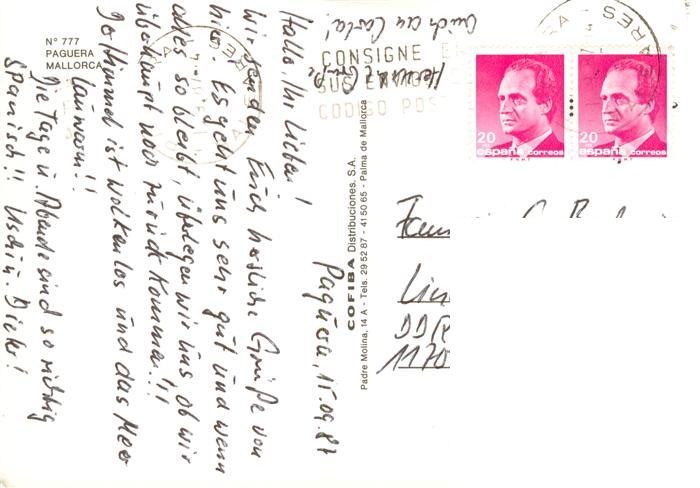 Nº 777
PAGUERA
MALLORCA
Paguera, 15.09.87
Hallo, Ihr Lieben!
Wir senden Euch herzliche Grüße von
hier. Es geht uns sehr gut und wenn
alles so bleibt, überlegen wir uns, ob wir
überhaupt noch zurück kommen!!!
Der Himmel ist wolkenlos und das Meer
lauwarm!!
Die Tage u. Abende sind so richtig
Spanisch!! Uschi u. Dieter!
Herzl. Grüße
auch an Carla!
COFIBA Distribuciones, S.A.
Padre Molina, 14 A - Tels. 29 52 87 - 41 50 65 - Palma de Mallorca
CONSIGNE EN
SUS ENVIOS
CODIGO POST
20
españa correos
F.N.M.T.
20
españa correos
F.N.M.T.
Fam
Lin
DDR
1170